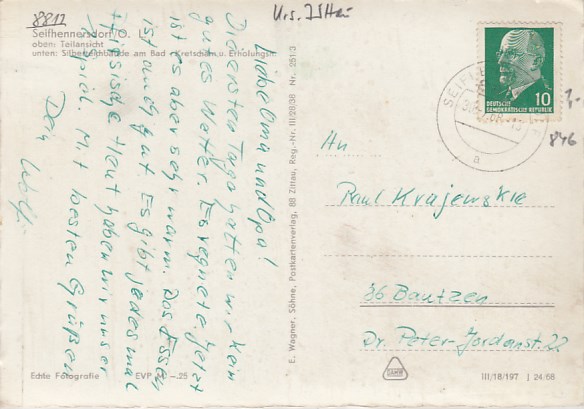 8812
Seifhennersdorf/O. L.
oben: Teilansicht
unten: Silberteichbaude am Bad - Kretscham u. Erholungsh.
Liebe Oma und Opa!
Die ersten Tage hatten wir kein
gutes Wetter. Es regnete. Jetzt
ist es aber sehr warm. Das Essen
ist auch gut. Es gibt jedesmal
Heute haben wir unser
spiel. Mit besten Grüßen
Dein Wolf.
Echte Fotografie EVP -.25
E. Wagner, Söhne, Postkartenverlag, 88 Zittau, Reg.-Nr. III/28/38 Nr. 251/3
DEUTSCHE
DEMOKRATISCHE REPUBLIK
10
a
846
An
Paul Krajewskie
86 Bautzen
Dr. Peter-Jordanstr. 22
III/18/197 J 24/68